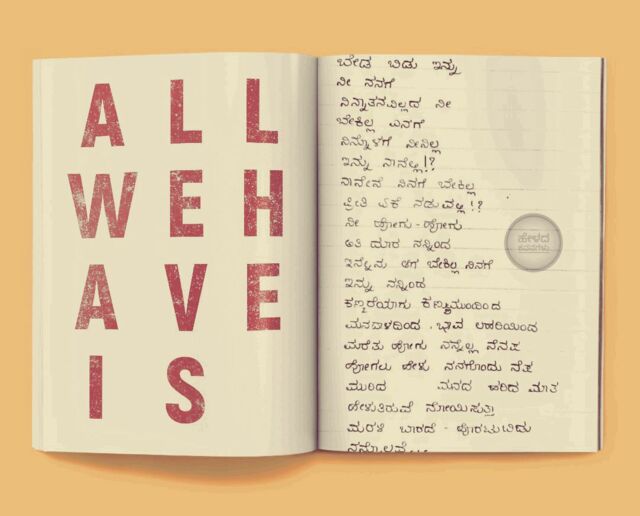 A L L
W E H
A V E
I S
ಬೇಡ ಬಿಡು ಇನ್ನು
ನೀ ನನಗೆ
ನಿನ್ನಾತನವಿಲ್ಲದ ನೀ
ಬೇಕಿಲ್ಲ ಎನಗೆ
ನಿನ್ನೊಳಗೆ ನೀನಿಲ್ಲ
ಇನ್ನು ನಾನೆಲ್ಲಿ!?
ನಾನೇನೆ ನಿನಗೆ ಬೇಕಿಲ್ಲ
ಪ್ರೀತಿ ಏಕೆ ನಡುವಲ್ಲಿ!?
ನೀ ಹೋಗು-ಹೋಗು
ಅತಿ ದೂರ ನನ್ನಿಂದ
ಇನ್ನೇನು ಆಗ ಬೇಕಿಲ್ಲ ನಿನಗೆ
ಇನ್ನು ನನ್ನಿಂದ
ಕಣ್ಮರೆಯಾಗು ಕಣ್ಣಮುಂದಿಂದ
ಮನದಾಳದಿಂದ ಭಾವ ಲಹರಿಯಿಂದ
ಮರೆತು ಹೋಗು ನನ್ನೆಲ್ಲ ನೆನಪ
ಹೋಗಲು ಹೇಳು ನನಗೊಂದು ನೆಪ
ಮುರಿದ ಮನದ ಹರಿದ ಮಾತ
ಹೇಳುತಿರುವೆ ನೋಯಿಸುತ್ತಾ
ಮರಳಿ ಬಾರದೆ - ಹೊರಟುಬಿಡು
ಹೇಳದ
ಕವನಗಳು